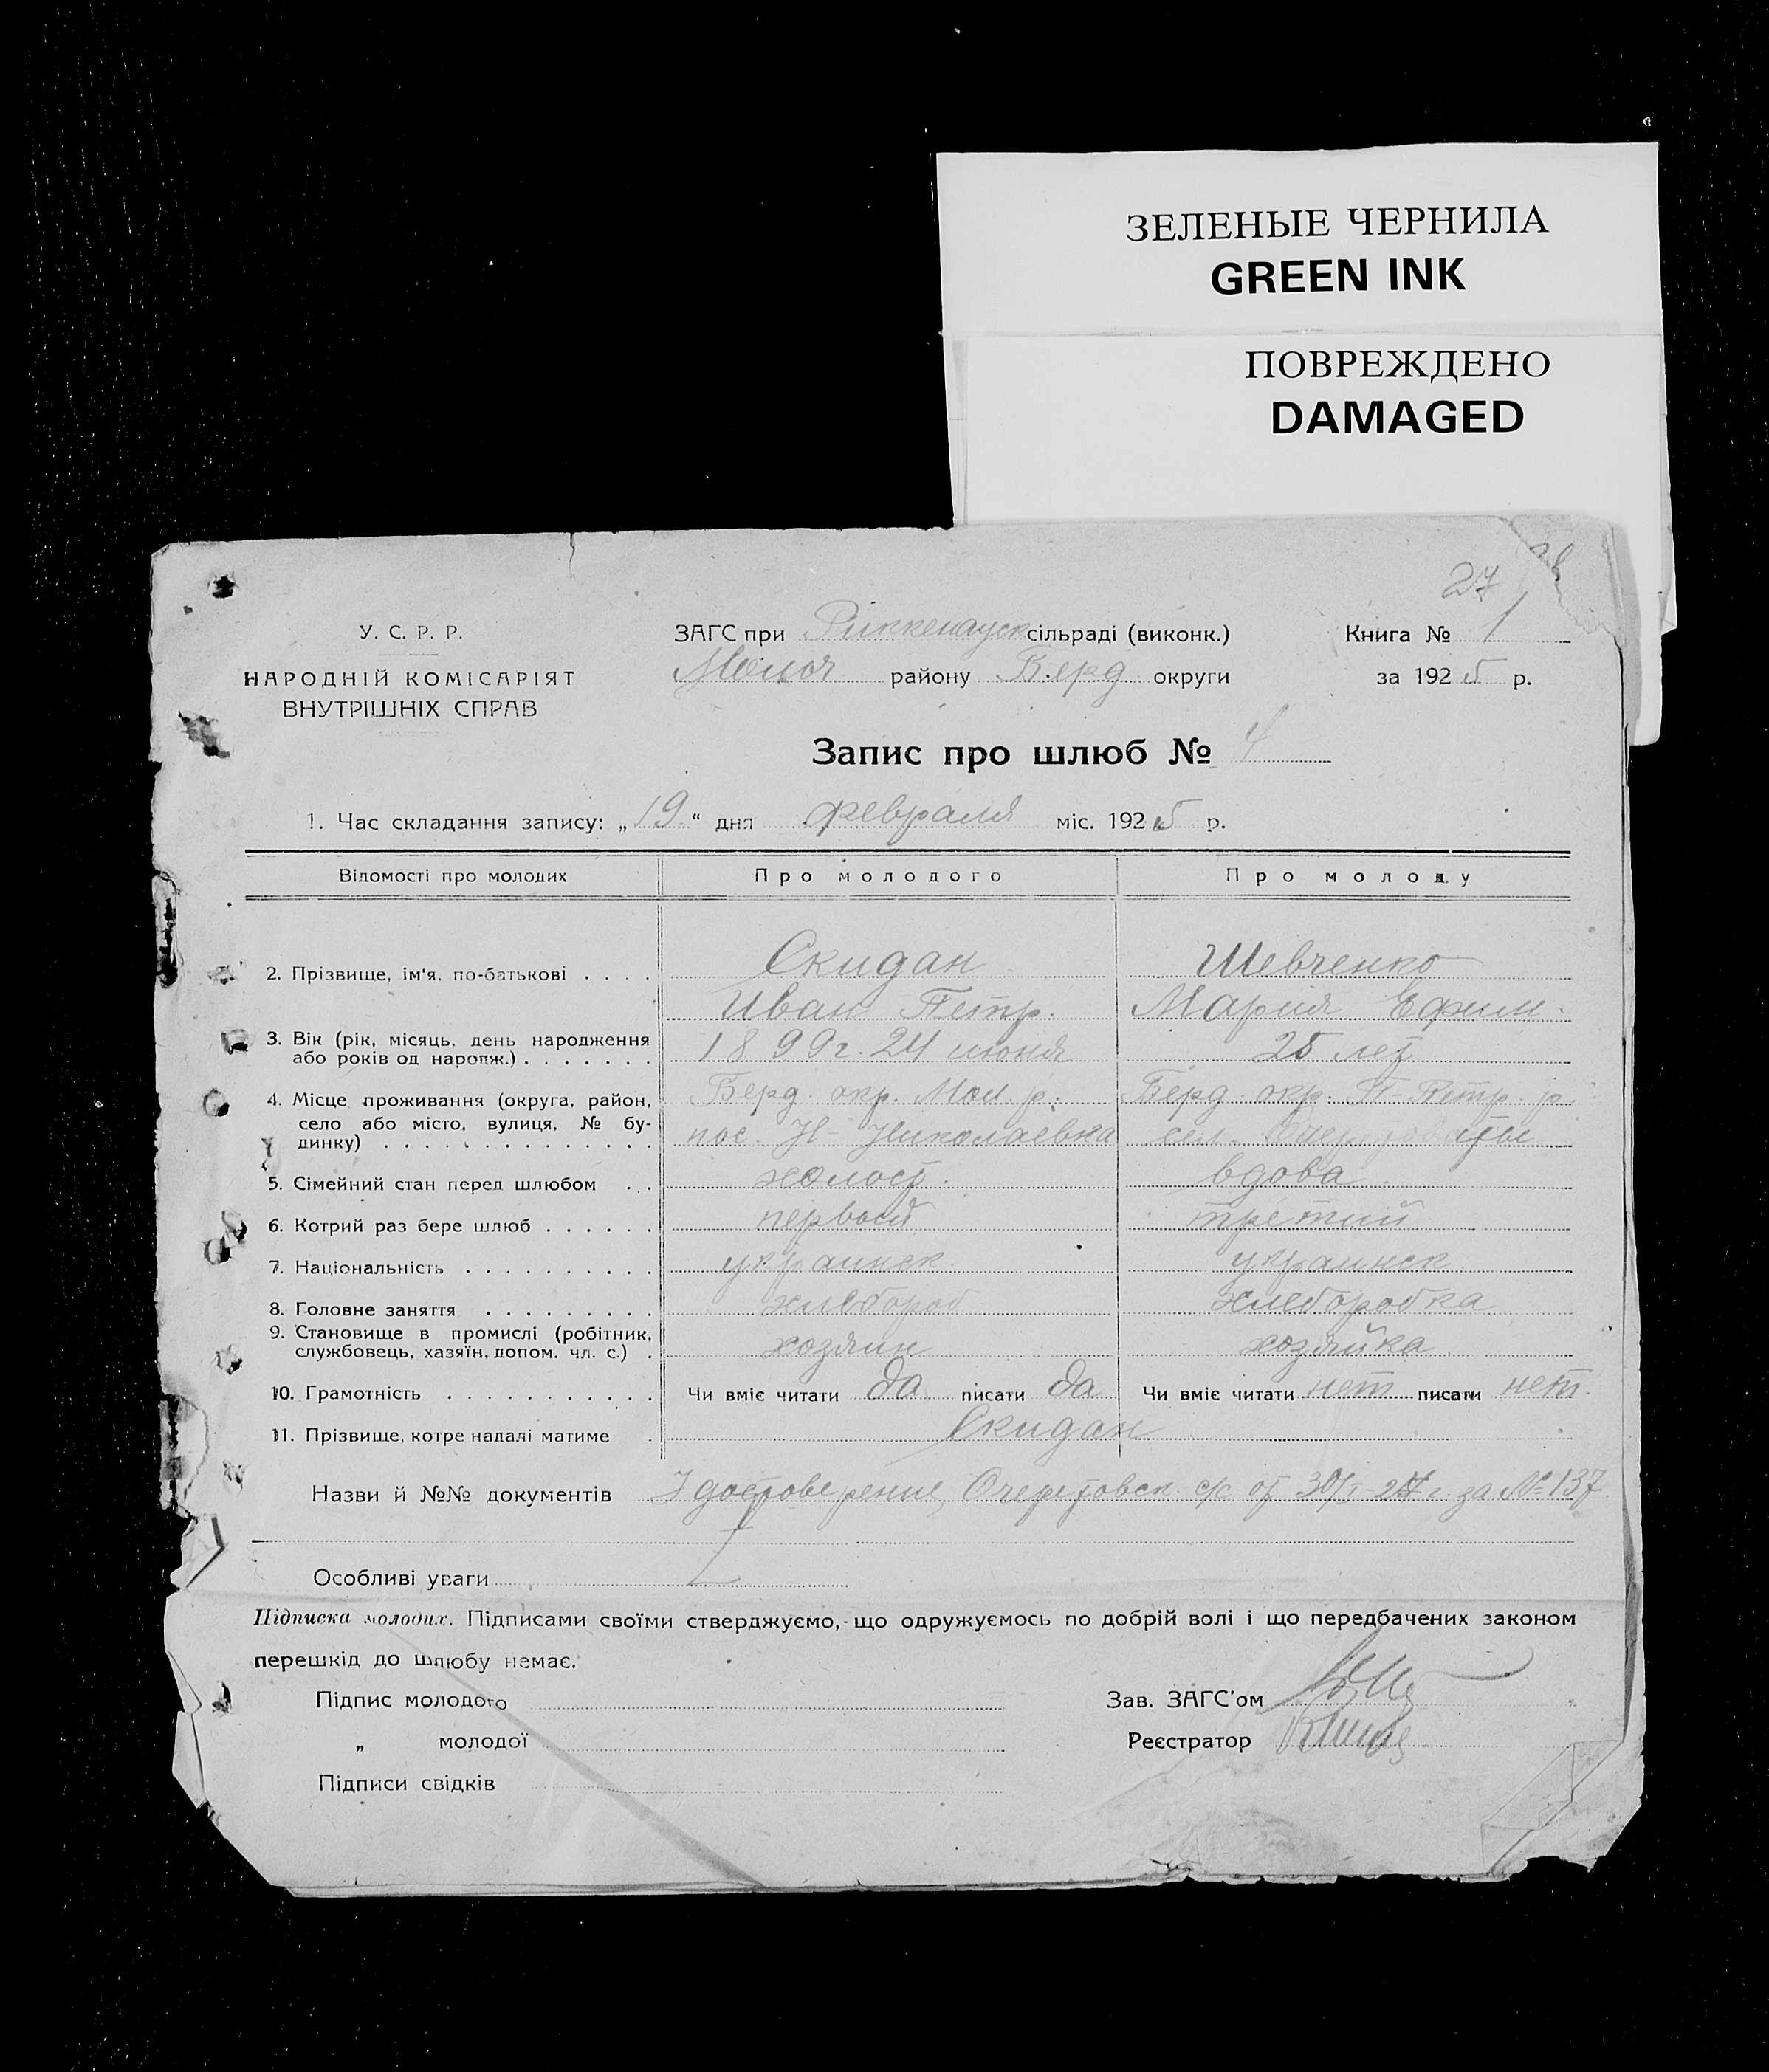 ЗЕЛЕНЫЕ ЧЕРНИЛА
GREEN INK
ПОВРЕЖДЕНО
DAMAGED
27
У. С. Р. Р.
НАРОДНІЙ КОМІСАРІЯТ
ВНУТРІШНІХ СПРАВ
ЗАГС при Риккенауск сільраді (виконк.)
Молоч району Берд округи
Книга № 1
за 1925 р.
Запис про шлюб № 4
1. Час складання запису: „19" дня февраля міс. 1925 р.
Відомості про молодих Про молодого Про молоду
2. Прізвище, ім'я, по-батькові . . . . Скидан Шевченко
Иван Петр. Мария Ефим.
3. Вік (рік, місяць, день народження
або років од народж.) . . . . . . . 1899 г. 24 июня 25 лет
4. Місце проживання (округа, район, Берд. окр. Мол. р. Берд. окр. П-Петр. р.
село або місто, вулиця, № бу-
динку) . . . . . . . . . . . . . . пос. Н-Николаевка сел.
5. Сімейний стан перед шлюбом . . холост. вдова
6. Котрий раз бере шлюб . . . . . . первый третий
7. Національність . . . . . . . . . . украинск. украинск
8. Головне заняття . . . . . . . . . хлебороб хлеборобка
9. Становище в промислі (робітник,
службовець, хазяїн, допом. чл. с.) . хозяин хозяйка
10. Грамотність . . . . . . . . . . . Чи вміє читати да писати да Чи вміє читати нет писати нет.
11. Прізвище, котре надалі матиме . Скидан
Назви й №№ документів Удостоверение Очеретовск с/с от 30/I-25 г. за №137.
Особливі уваги
Підписка молодих. Підписами своїми стверджуємо, що одружуємось по добрій волі і що передбачених законом
перешкід до шлюбу немає.
Підпис молодого
„ молодої
Підписи свідків
Зав. ЗАГС'ом
Реєстратор